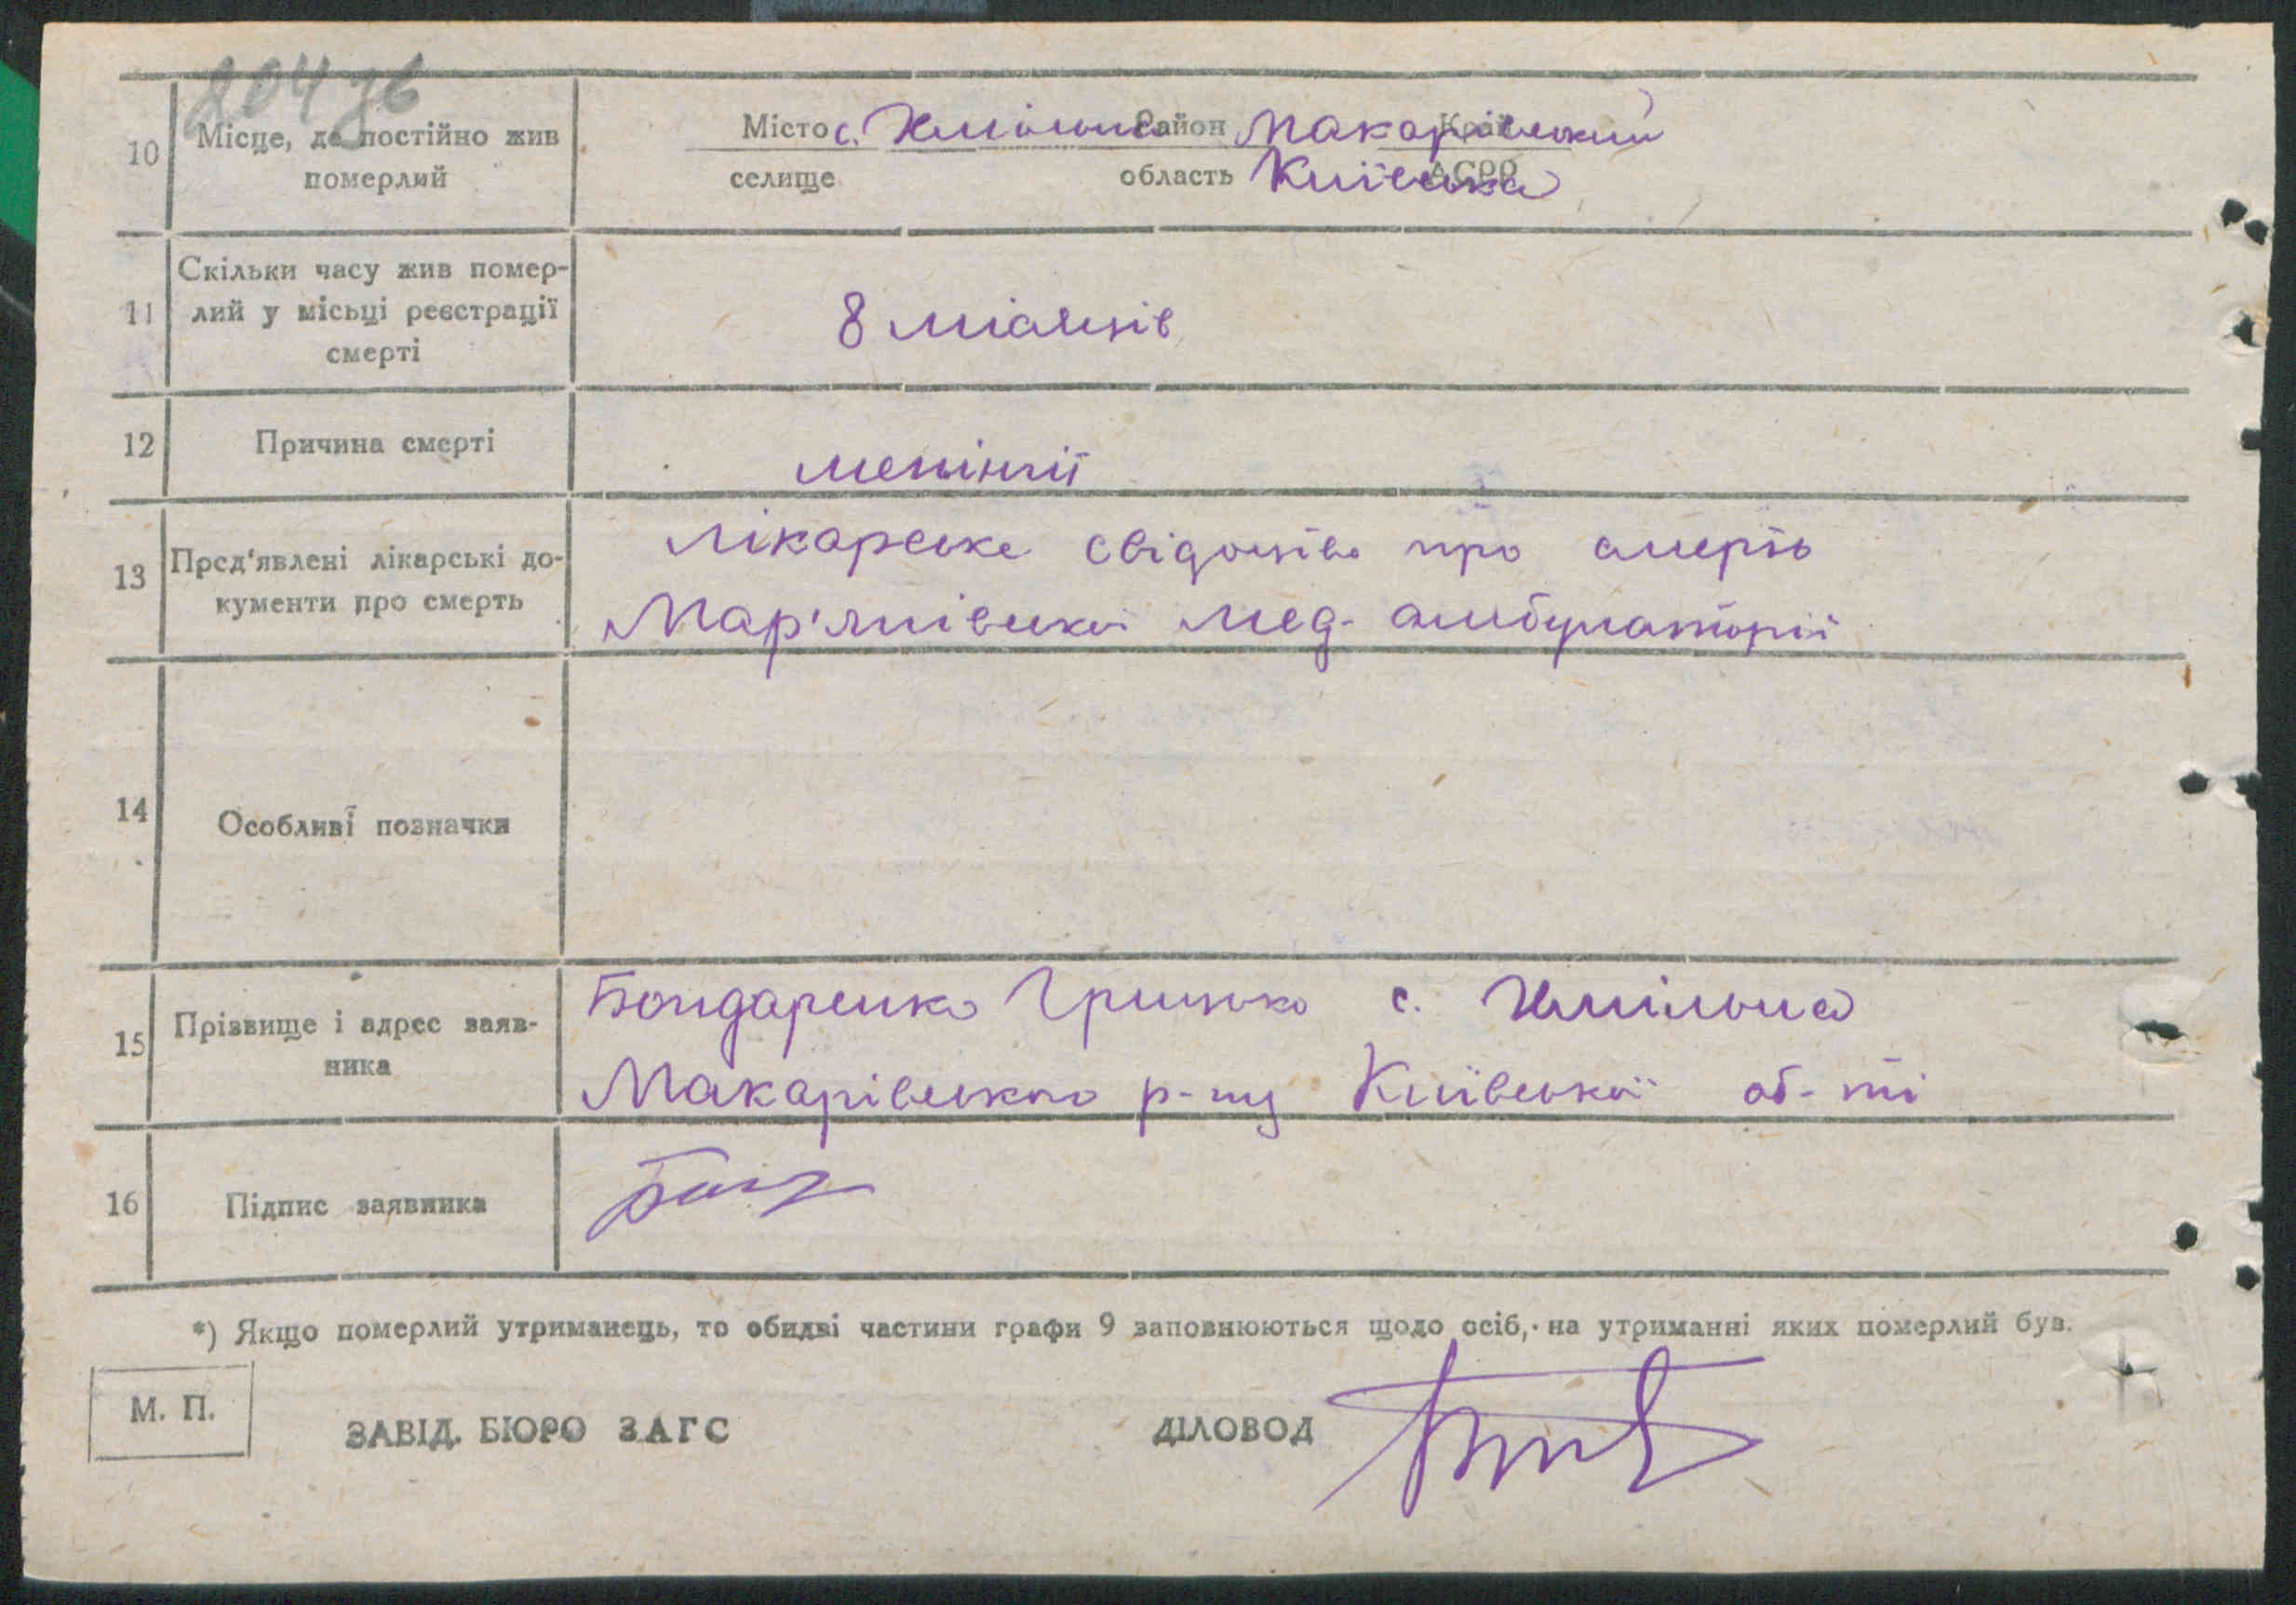 204 зв
10 Місце, де постійно жив
померлий
Місто с. Хмільна Район Макарівський Край
селище область Київська АСРР
Скільки часу жив помер-
11 лий у місьці реєстрації
смерті
8 місяців
12 Причина смерті
менінгії
13 Пред'явлені лікарські до-
кументи про смерть
Лікарське свідоцтво про смерть
Мар'янівської мед. амбулаторії
14 Особливі позначки
15 Прізвище і адрес заяв-
ника
Бондаренко Грицько с. Хмільна
Макарівського р-ну Київської об-ті
16 Підпис заявника
*) Якщо померлий утриманець, то обидві частини графи 9 заповнюються щодо осіб, на утриманні яких померлий був.
М. П.
ЗАВІД. БЮРО ЗАГС ДІЛОВОД